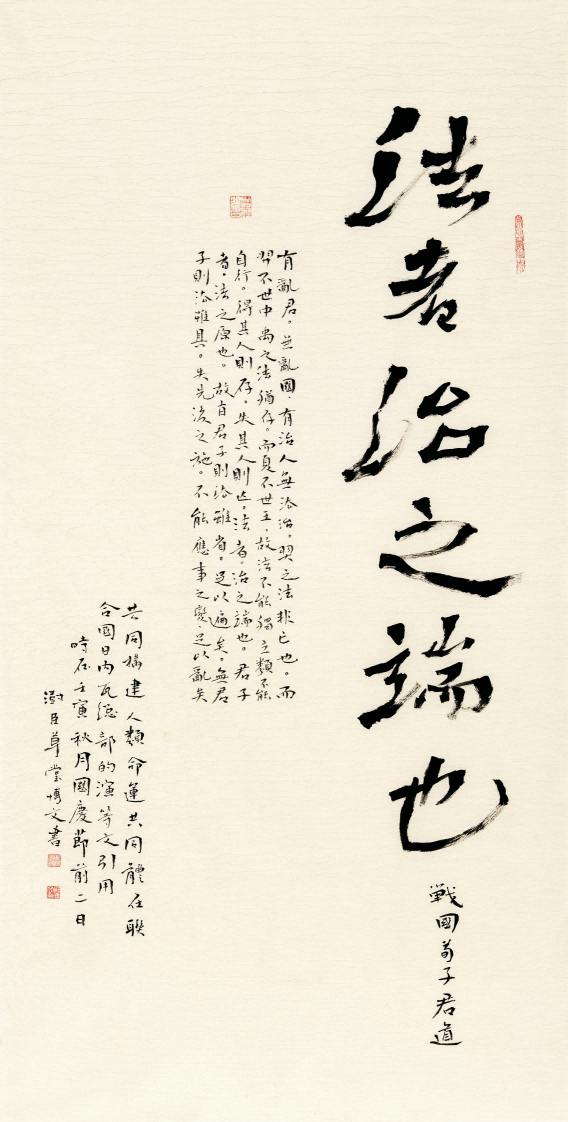 法者治之端也
戰國荀子君道
有亂君。無亂國。有治人無治法。羿之法非亡也。而
羿不世中禹之法猶存。而夏不世王。故法不能獨立類不能
自行。得其人則存。失其人則亡。法者。治之端也。君子
者。法之原也。故有君子則法雖省。足以遍矣。無君
子則法雖具。失先後之施。不能應事之變。足以亂矣
共同構建人類命運共同體在聯
合國日內瓦總部的演等文引用
時在壬寅秋月國慶節前二日
澍臣草堂博文書